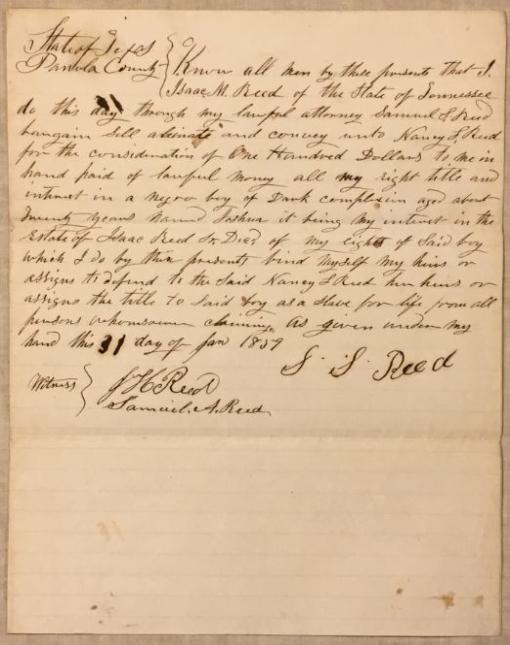 State of Texas
Panola County
Know all men by these presents that I.
Isaac M. Reed of the State of Tennessee
do this day through my lawful attorney Samuel S Reed
bargain Sell alienate and convey unto Nancy S. Reed
for the consideration of One Hundred Dollars to me in
hand paid of lawful money all my right title and
intrest in a negro boy of Dark complexion aged about
twenty years named Joshua it being my intrest in the
Estate of Isaac Reed Sr Decd of my right of said boy
which I do by these presents bind myself my heirs or
assigns to defend to the said Nancy S Reed her heirs or
assigns the title to said boy as a slave for life from all
persons whomsoever claiming. As given under my
hand this 31 day of Jan 1859
S. S. Reed
Witness
J H Reed
Samuel. A. Reed